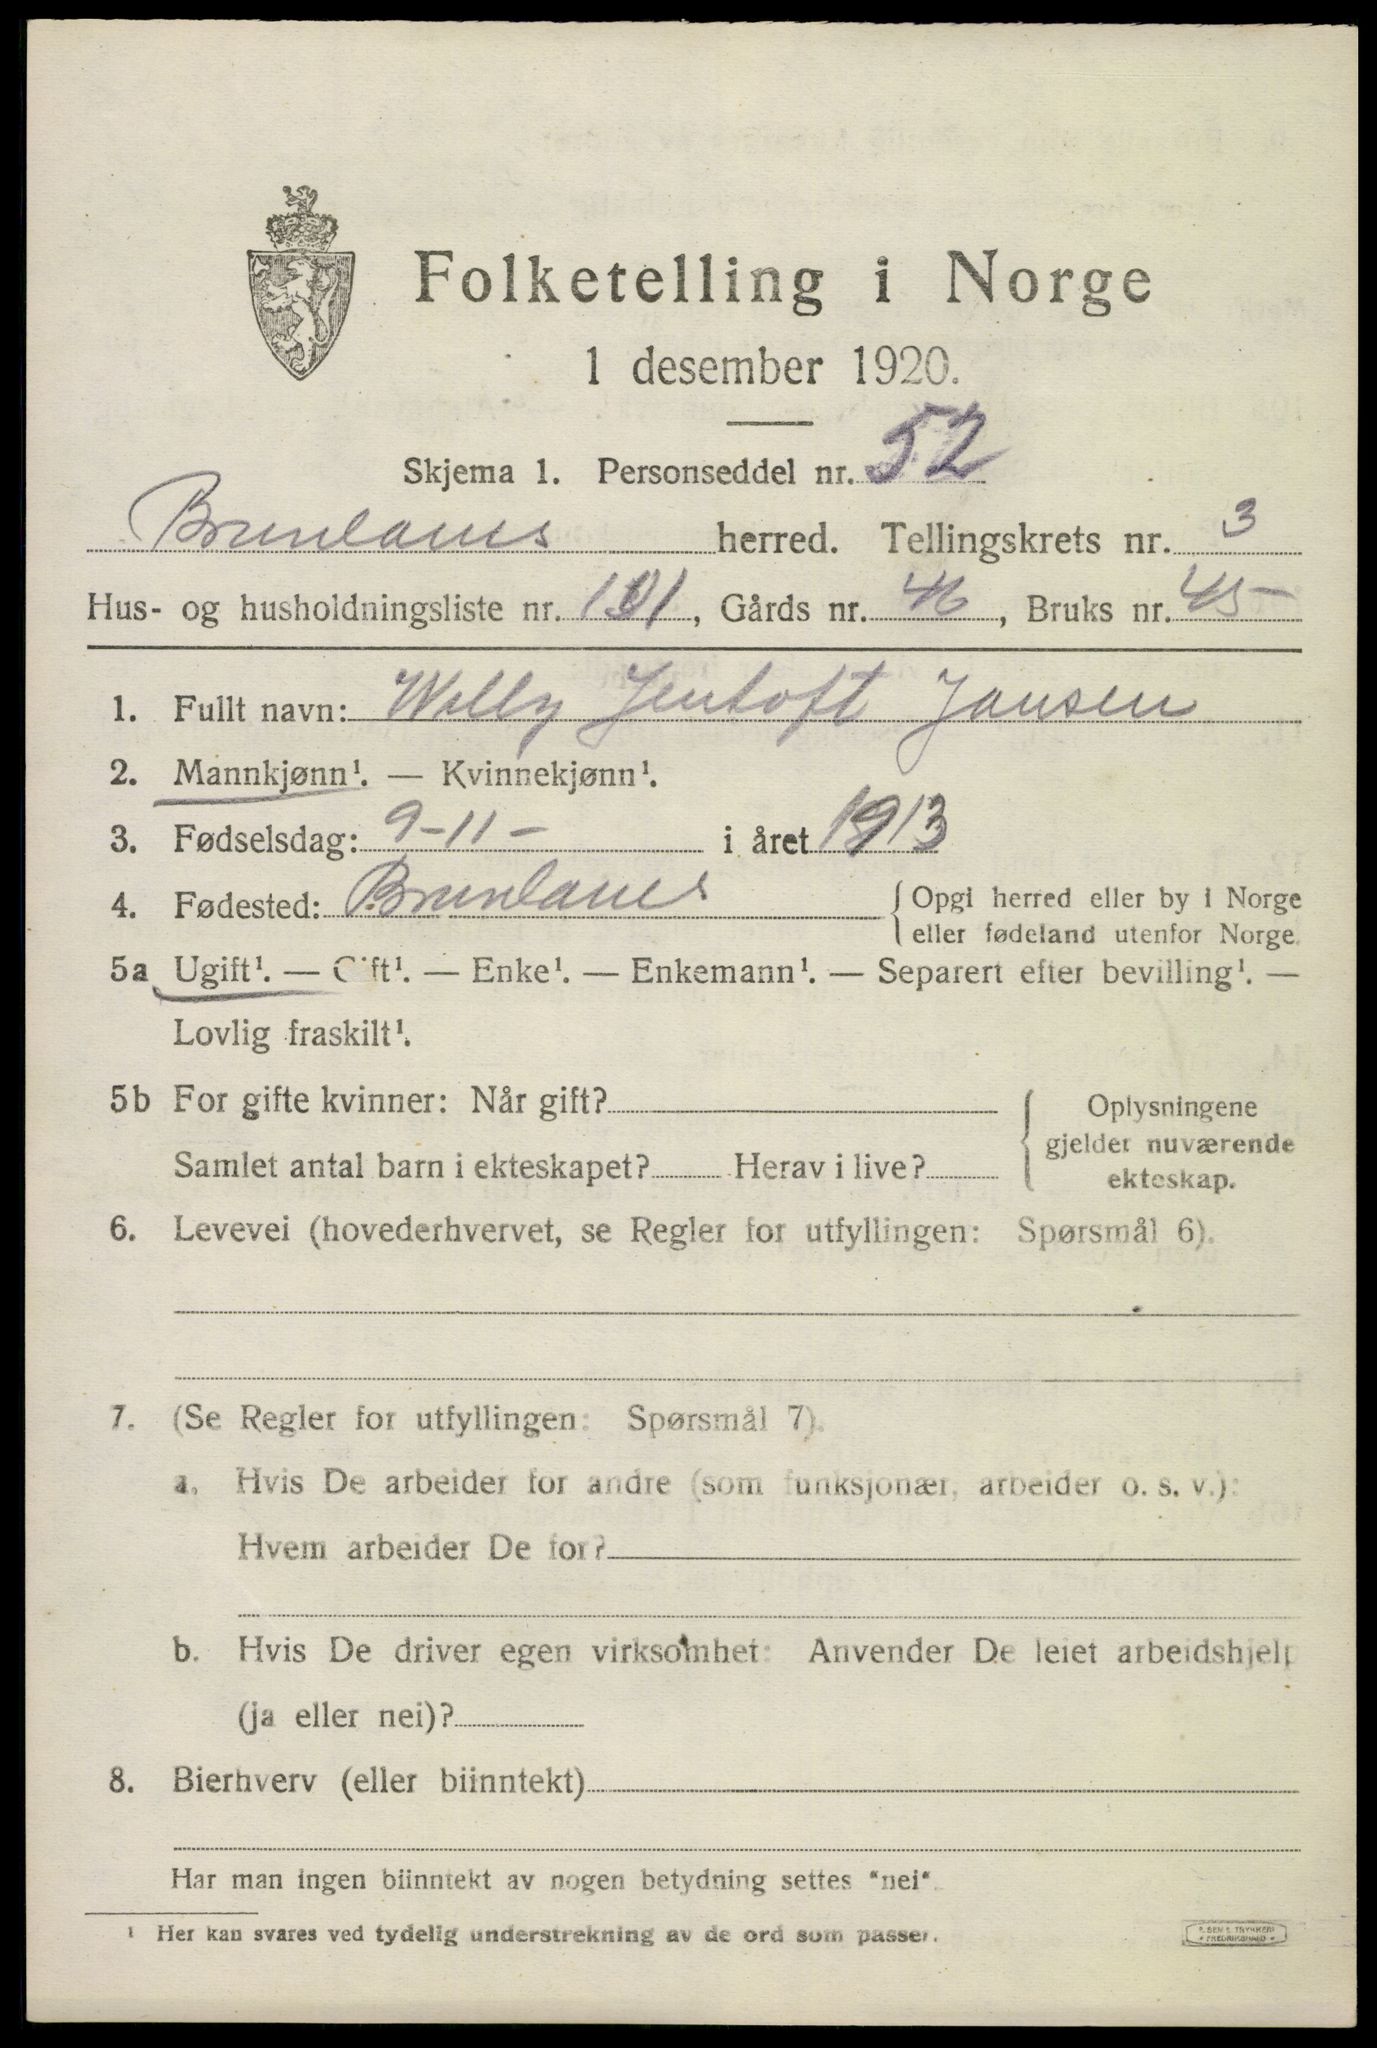 Folketelling i Norge
1 desember 1920.
Skjema 1. Personseddel nr. 52
Brunlanes herred. Tellingskrets nr. 3
Hus- og husholdningsliste nr. 101, Gårds nr. 46, Bruks nr. 45
1. Fullt navn: Willy Jentoft Jansen
2. Mannkjønn¹. — Kvinnekjønn¹.
3. Fødselsdag: 9-11- i året 1913
4. Fødested: Brunlanes { Opgi herred eller by i Norge
eller fødeland utenfor Norge.
5a Ugift¹. — Gift¹. — Enke¹. — Enkemann¹. — Separert efter bevilling¹. —
Lovlig fraskilt¹.
5b For gifte kvinner: Når gift?
Samlet antal barn i ekteskapet? Herav i live?
{ Oplysningene
gjelder nuværende
ekteskap.
6. Levevei (hovederhvervet, se Regler for utfyllingen: Spørsmål 6).
7. (Se Regler for utfyllingen: Spørsmål 7).
a. Hvis De arbeider for andre (som funksjonær, arbeider o. s. v.):
Hvem arbeider De for?
b. Hvis De driver egen virksomhet: Anvender De leiet arbeidshjelp
(ja eller nei)?
8. Bierhverv (eller biinntekt)
Har man ingen biinntekt av nogen betydning settes "nei".
¹ Her kan svares ved tydelig understrekning av de ord som passer.